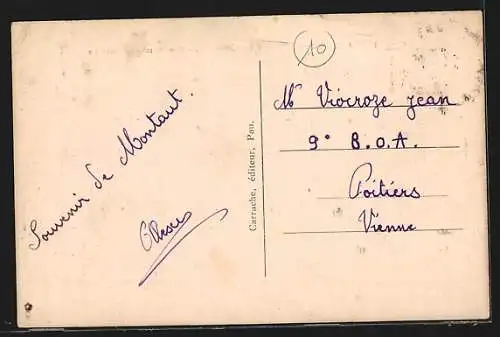 Souvenir de Montaut.
Carrache, éditeur, Pau.
10
Mr Viocroze Jean
9e B.O.A.
Poitiers
Vienne